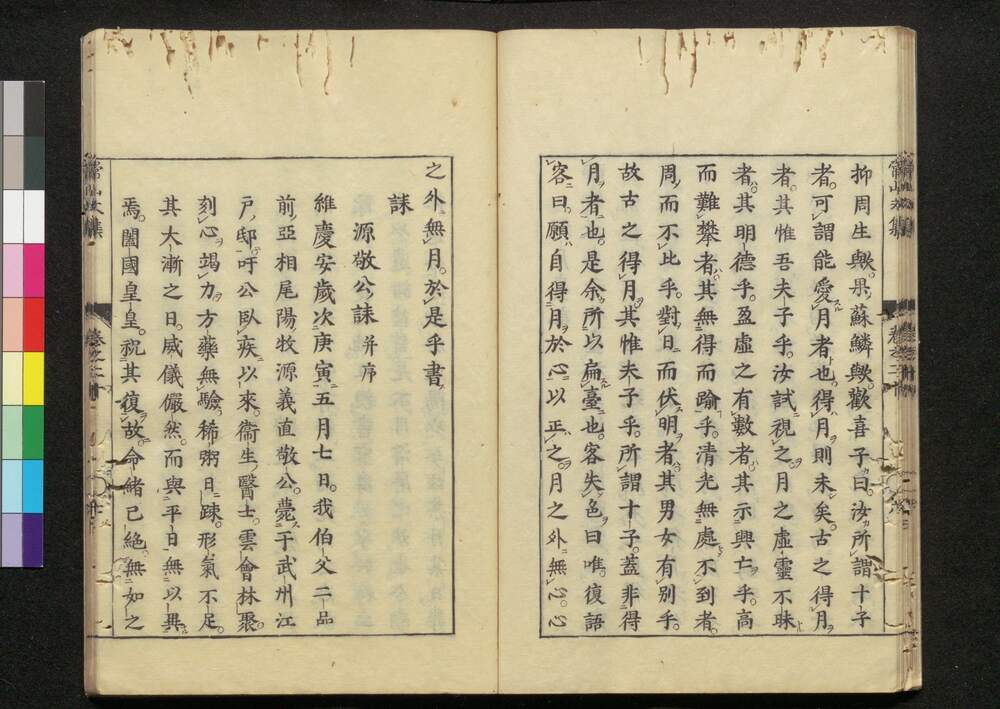 抑周生與果蘇鱗與歡喜子曰汝所謂十子
者可謂能愛月者也得月則未矣古之得月
者其惟吾夫子乎汝試視之月之虛靈不昧
者其明德乎盈虛之有數者其示興亡乎高
而難攀者其無得而踰乎清光無處不到者
周而不比乎對日而伏明者其男女有別乎
故古之得月其惟夫子乎所謂十子蓋非得
月者也是余所以扁臺也客失色曰唯復語
容曰願自得月於心以正之月之外無心心
之外無月於是乎書
誄
源敬公誄并序
維慶安歲次庚寅五月七日我伯父二品
前亞相尾陽牧源義直敬公薨于武州江
戶邸吁公臥疾以來衞生醫士雲會林聚
刻心竭力方藥無驗稀粥日踈形氣不足
其大漸之日威儀儼然而與平日無以異
焉闔國皇皇祝其復故命緒已絕無如之
常山文集
卷之二十
常山文集
卷之二十